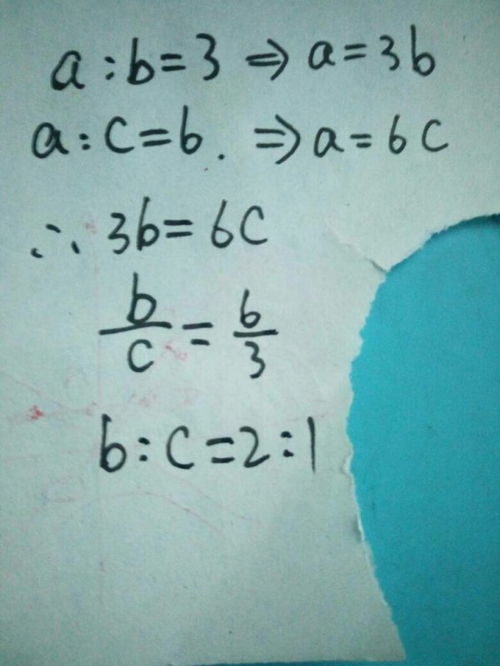 a:b=3 ⇒ a=3b
a:c=6. ⇒ a=6c
∴ 3b=6c
b/c = 6/3
b:c=2:1